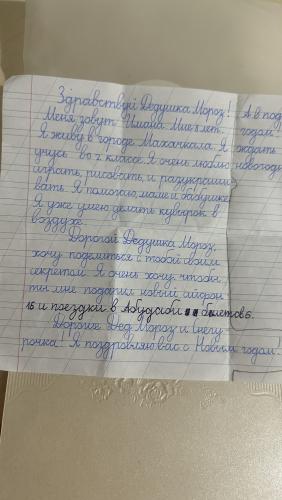 Здравствуй Дедушка Мороз! А в под
Меня зовут Имана Мне 7 лет. годом!
Я живу в городе Махачкала. Я ждать
учусь во 2 классе. Я очень люблю новогод
играть, рисовать и разукраши
вать. Я помогаю, маме и бабушке.
Я уже умею делать кувырок в
воздухе.
Дорогой Дедушка Мороз,
хочу поделиться с тобой своим
секретом. Я очень хочу чтобы
ты мне подарил новый айфон
16 и поездки в Абудсаби билетов 6.
Дорогие Дед Мороз и снегу
рочка! Я поздравляю вас с Новым годом!